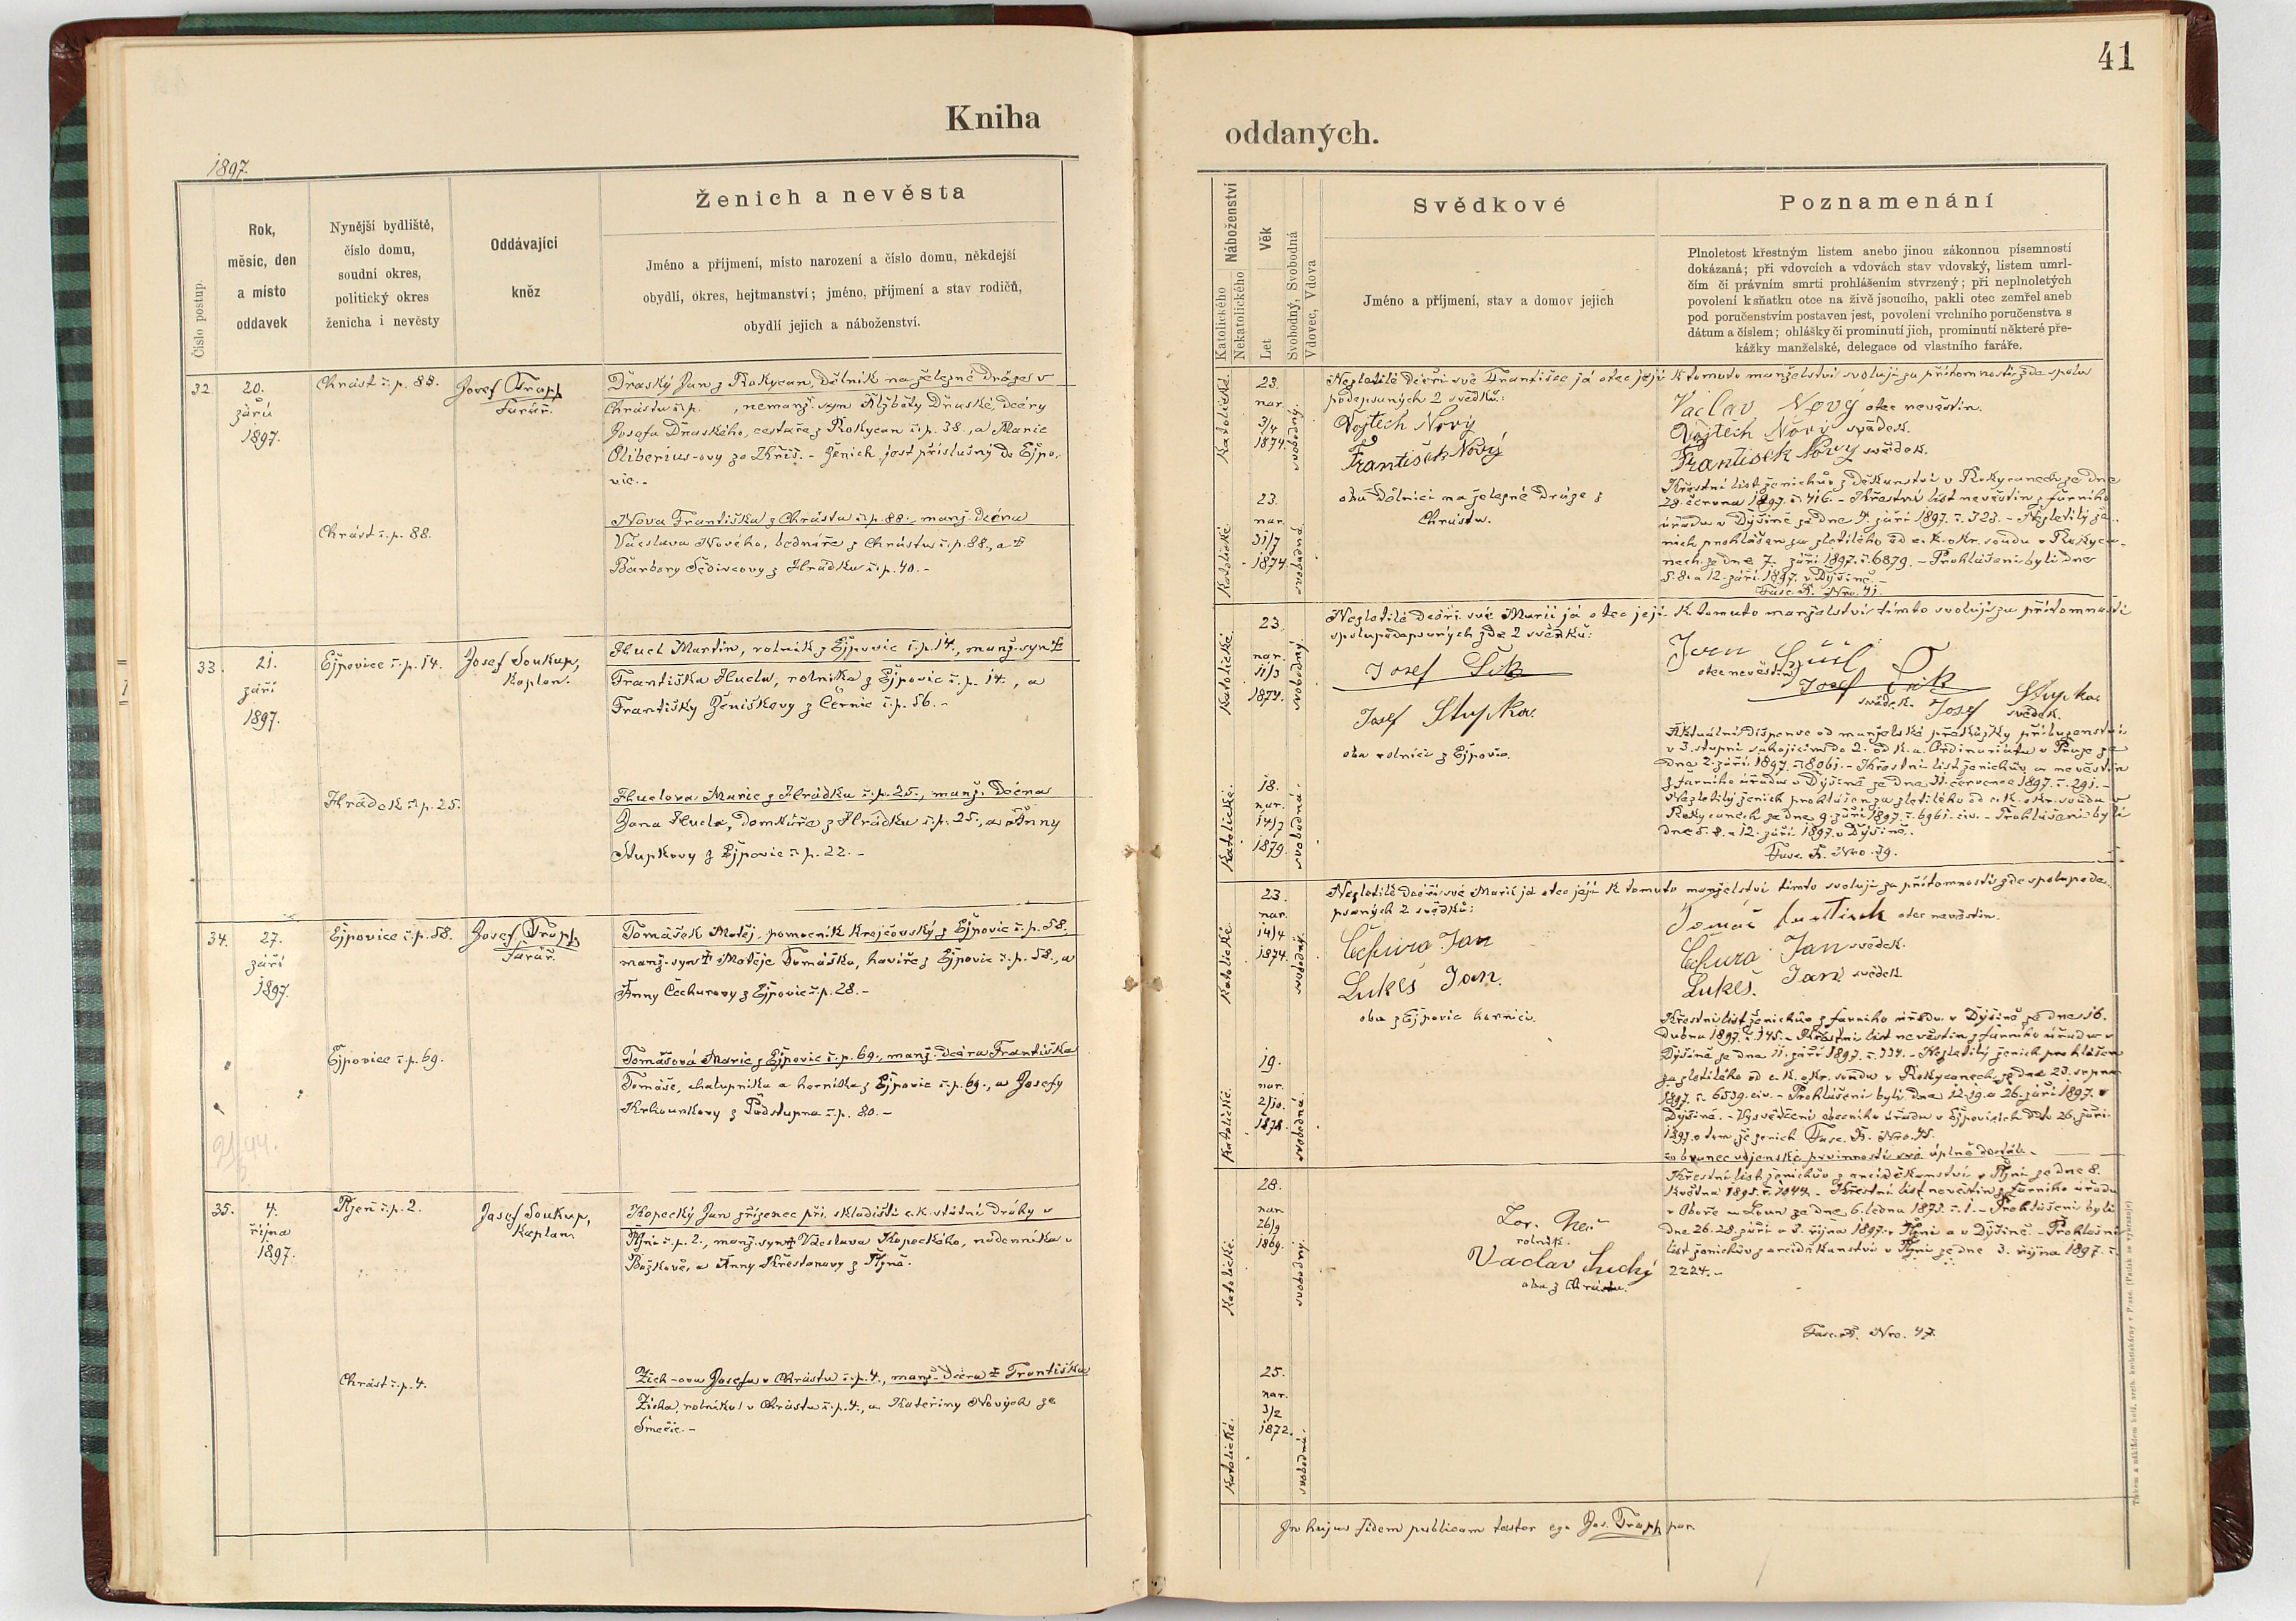 41
Kniha
oddaných.
1897.
Číslo postup.
Rok,
měsíc, den
a místo
oddavek
Nynější bydliště,
číslo domu,
soudní okres,
politický okres
ženicha i nevěsty
Oddávající
kněz
Ženich a nevěsta
Jméno a příjmení, místo narození a číslo domu, někdejší
obydlí, okres, hejtmanství; jméno, příjmení a stav rodičů,
obydlí jejich a náboženství.
32.
20.
září
1897.
Chrást č.p. 88.
Josef Trapp
farář.
Draský Jan z Rokycan, dělník na železné dráze v
Chrástu č.p. , nemanž. syn Alžběty Draské, dcery
Josefa Draského, cestaře z Rokycan č.p. 38., a Marie
Oliberius-ovy ze Zhříš. - Ženich jest příslušný do Ejpo-
vic. -
Chrást č.p. 88.
Nová Františka z Chrástu č.p. 88., manž. dcera
Václava Nového, bednáře z Chrástu č.p. 88., a †
Barbory Šedivcovy z Hrádku č.p. 40. -
33.
21.
září
1897.
Ejpovice č.p. 14.
Josef Soukup,
kaplan.
Hucl Martin, rolník z Ejpovic č.p. 14., manž. syn †
Františka Hucla, rolníka z Ejpovic č.p. 14., a
Františky Ženiškovy z Černic č.p. 56. -
Hrádek č.p. 25.
Huclova Marie z Hrádku č.p. 25., manž. dcera
Jana Hucla, domkáře z Hrádku č.p. 25., a Anny
Stupkovy z Ejpovic č.p. 22. -
34.
27.
září
1897.
Ejpovice č.p. 58.
Josef Trapp
farář.
Tomášek Matěj, pomocník krejčovský z Ejpovic č.p. 58.,
manž. syn † Matěje Tomáška, havíře z Ejpovic č.p. 58., a
Anny Čechurovy z Ejpovic č.p. 28. -
Ejpovice č.p. 69.
Tomášová Marie z Ejpovic č.p. 69., manž. dcera Františka
Tomáše, chalupníka a horníka z Ejpovic č.p. 69., a Josefy
Krhounkovy z Podstupna č.p. 80. -
35.
4.
října
1897.
Plzeň č.p. 2.
Josef Soukup,
kaplan.
Kopecký Jan zřízenec při skladišti c.k. státní dráhy v
Plzni č.p. 2., manž. syn † Václava Kopeckého, nádenníka v
Božkově, a Anny Křesťanovy z Plzně.
Chrást č.p. 4.
Zich-ova Josefa v Chrástu č.p. 4., manž. dcera † Františka
Zicha, rolníka v Chrástu č.p. 4., a Kateřiny Nových ze
Smečic. -
Náboženství
Katolického
Nekatolického
Věk
Let
Svobodný, Svobodná
Vdovec, Vdova
Svědkové
Jméno a příjmení, stav a domov jejich
Poznamenání
Plnoletost křestným listem anebo jinou zákonnou písemností
dokázaná; při vdovcích a vdovách stav vdovský, listem umrl-
čím či právním smrti prohlášením stvrzený; při neplnoletých
povolení k sňatku otce na živě jsoucího, pakli otec zemřel aneb
pod poručenstvím postaven jest, povolení vrchního poručenstva s
dátum a číslem; ohlášky či prominutí jich, prominutí některé pře-
kážky manželské, delegace od vlastního faráře.
Katolické.
23.
nar.
3/4
1874.
svobodný.
Nezletilé dceři své Františce já otec její k tomuto manželství svoluji za přítomnosti zde spolu
podepsaných 2 svědků:
Vojtěch Nový
František Nový
oba dělníci na železné dráze z
Chrástu.
Vaclav Novy otec nevěstin.
Vojtěch Nový svědek.
František Nový svědek.
Křestní list ženichův z děkanství v Rokycanech ze dne
28. června 1897. č. 416. - Křestní list nevěstin z farního
úřadu v Dýšině ze dne 4. září 1897. č. 323. - Nezletilý že-
nich prohlášen za zletilého od c.k. okr. soudu v Rokyca-
nech ze dne 7. září 1897. č. 6879. - Prohlášeni byli dne
5. 8. a 12. září 1897. v Dýšině. -
Fasc. A. Nro. 41.
Katolické.
23.
nar.
31/7
1874.
svobodná.
Katolické.
23.
nar.
11/3
1874.
svobodný.
Nezletilé dceři své Marii já otec její k tomuto manželství tímto svoluji za přítomnosti
spolupodepsaných zde 2 svědků:
Josef Šik
Josef Stupka.
oba rolníci z Ejpovic.
otec nevěstin
Josef Šik
svědek.
Josef Stupka
svědek.
Aktuální dispense od manželské překážky příbuzenství
v 3. stupni sahajícím do 2. od k.a. Ordinariátu v Praze ze
dne 2. září 1897. č. 8061. - Křestní list ženichův a nevěstin
z farního úřadu v Dýšině ze dne 31. července 1897. č. 291. -
Nezletilý ženich prohlášen za zletilého od c.k. okr. soudu v
Rokycanech ze dne 9. září 1897. č. 6961. civ. - Prohlášeni byli
dne 5. 8. a 12. září 1897. v Dýšině.
Fasc. A. Nro. 39.
Katolické.
18.
nar.
14/7
1879.
svobodná.
Katolické
23.
nar.
14/4
1874.
svobodný.
Nezletilé dceři své Marii já otec její k tomuto manželství tímto svoluji za přítomnosti zde spolupode-
psaných 2 svědků:
Čechura Jan
Lukeš Jan.
oba z Ejpovic horníci.
Tomáš František otec nevěstin.
Čechura Jan svědek.
Lukeš Jan svědek.
Křestní list ženichův z farního úřadu v Dýšině ze dne 16.
dubna 1897. č. 145. - Křestní list nevěstin z farního úřadu v
Dýšině ze dne 11. září 1897. č. 334. - Nezletilý ženich prohlášen
za zletilého od c.k. okr. soudu v Rokycanech ze dne 23. srpna
1897. č. 6539. civ. - Prohlášeni byli dne 12. 19. a 26. září 1897. v
Dýšině. - Vysvědčení obecního úřadu v Ejpovicích ddo 26. září
1897. o tom že ženich Fasc. A. Nro. 45.
co branec vojenské povinnosti své úplně dostál. -
Katolické.
19.
nar.
2/10.
1878.
svobodná.
Katolické.
28.
nar.
26/9
1869.
svobodný.
rolník.
Vaclav Suchý
oba z Chrástu.
Křestní list ženichův z arciděkanství v Plzni ze dne 8.
května 1895. č. 1044. - Křestní list nevěstin z farního úřadu
v Oboře u Loun ze dne 6. ledna 1873. č. 1. - Prohlášeni byli
dne 26. 28. září a 3. října 1897. v Plzni a v Dýšině. - Prohlašní
list ženichův z arciděkanství v Plzni ze dne 3. října 1897. č.
2224. -
Fasc. A. Nro. 47.
Katolické.
25.
nar.
3/2
1872.
svobodná.
In hujus fidem publicam testor ego Jos. Trapp par.